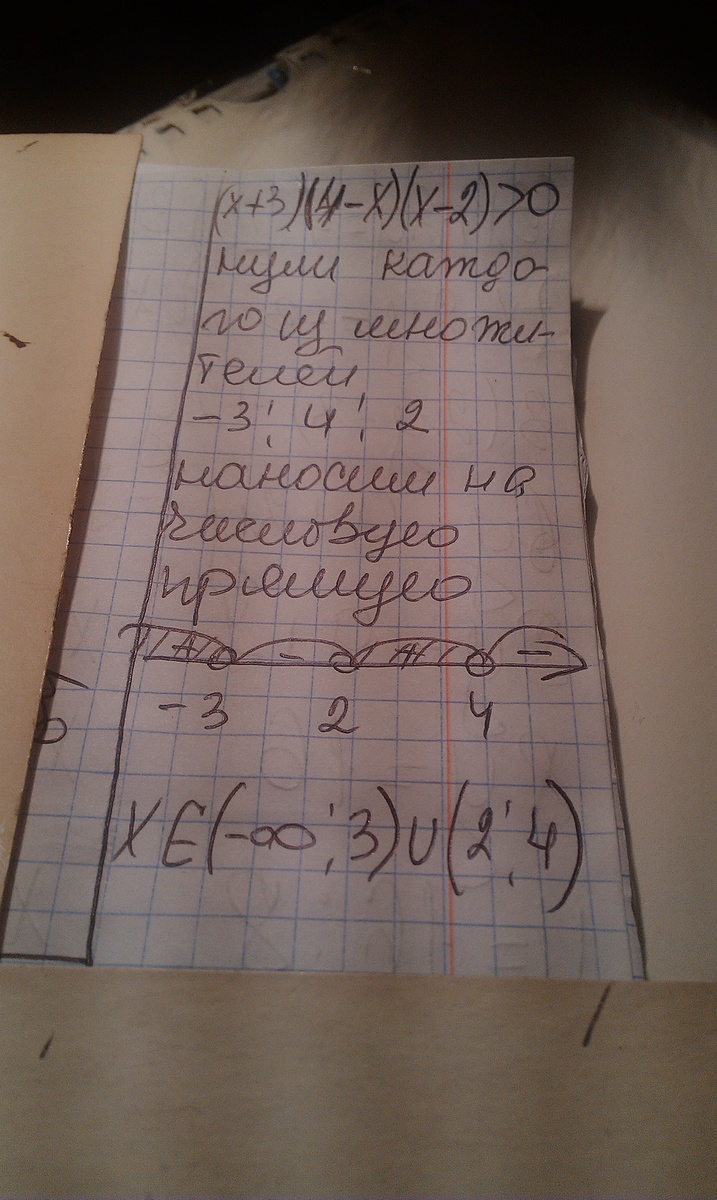 (x+3)(4-x)(x-2)>0
нули каждо-
го из множи-
телей
-3; 4; 2
наносим на
числовую
прямую
+ - + -
-3 2 4
X∈(-∞; 3)∪(2; 4)